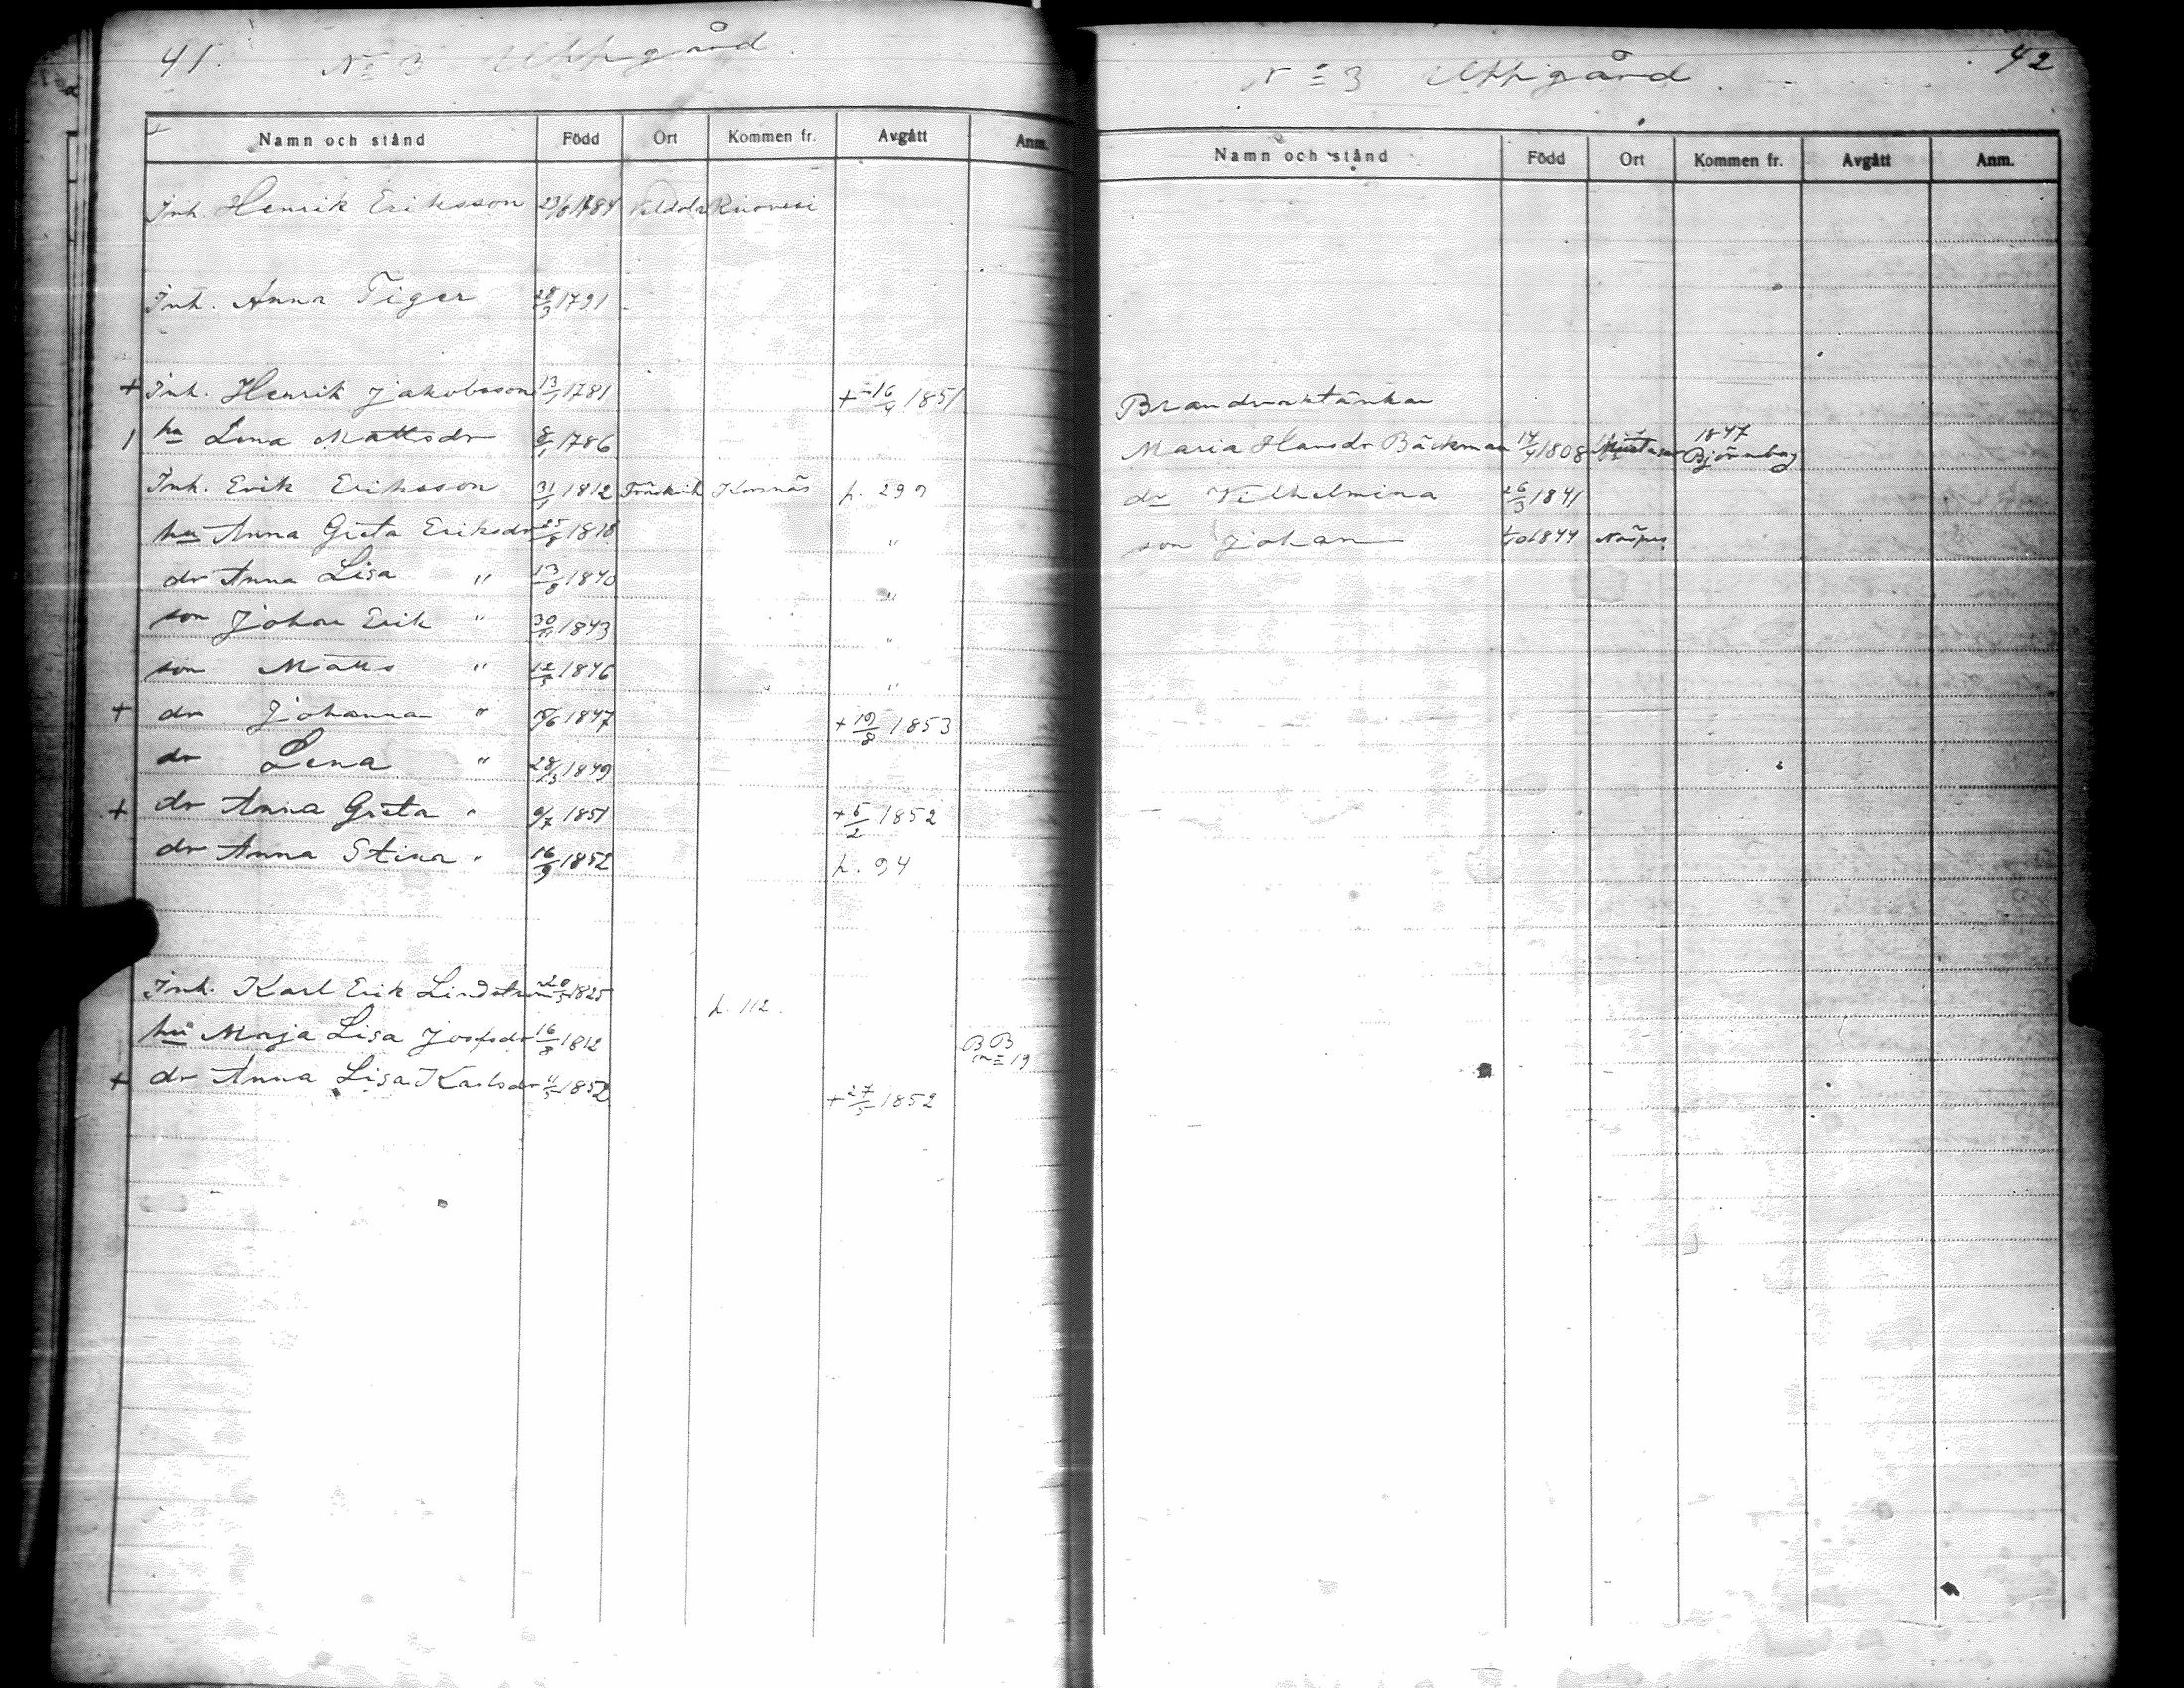 41. No 3 Uppgård.
Namn och stånd Född Ort Kommen fr. Avgått Anm.
Inh. Henrik Eriksson 23/8 1784
Inh. Anna Tiger 28/3 1791
+ Inh. Henrik Jakobsson 13/1 1781 + 16/4 1851
hu Lena Mattsdr 8/1 1786
Inh. Erik Eriksson 31/1 1812 Korsnäs p. 299
hu Anna Greta Eriksdr 25/8 1818 "
dr Anna Lisa " 13/8 1840 "
son Johan Erik " 30/11 1843 "
son Matts " 1846 "
+ dr Johanna " 1847 + 19/8 1853
dr Lena " 28/3 1849
+ dr Anna Greta " 9/7 1851 + 5/2 1852
dr Anna Stina " 16/9 1852 p. 94
Inh. Karl Erik Lindström 1825 p. 112.
hu Maja Lisa Josefsdr 16/8 1812 BB no 19
+ dr Anna Lisa Karlsdr 1852 + 27/5 1852
42
No 3 Uppgård.
Namn och stånd Född Ort Kommen fr. Avgått Anm.
Brandvaktänkan
Maria Hansdr Bäckman 14/4 1808 1847 Björneborg
dr Vilhelmina 26/3 1841
son Johan 1844 Närpes